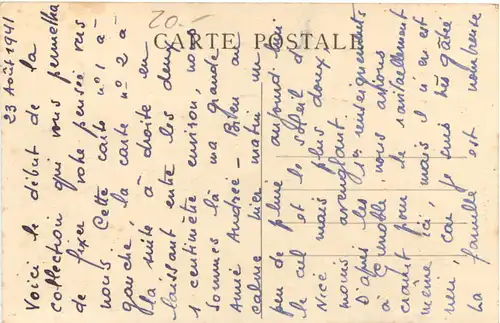 20.-
CARTE POSTALE
23 Août 1941
Voici le début de la
collection qui vous permettra
de fixer votre pensée vers
nous. Cette carte n° 1 à
gauche, la carte n° 2 à
la suite, à droite en
laissant entre les deux
1 centimètre environ, nous
sommes là ma grande
Annie Andrée - Bien au
calme hier matin un
peu de pluie aujourd'hui
le ciel et le soleil de
Nice mais plus doux
moins aveuglant.
D'après les 1ers renseignements
à Grenoble, nous avions
craint pour le ravitaillement
mais il n'en est
même ici, très gâtée
car je suis
La famille est nombreuse